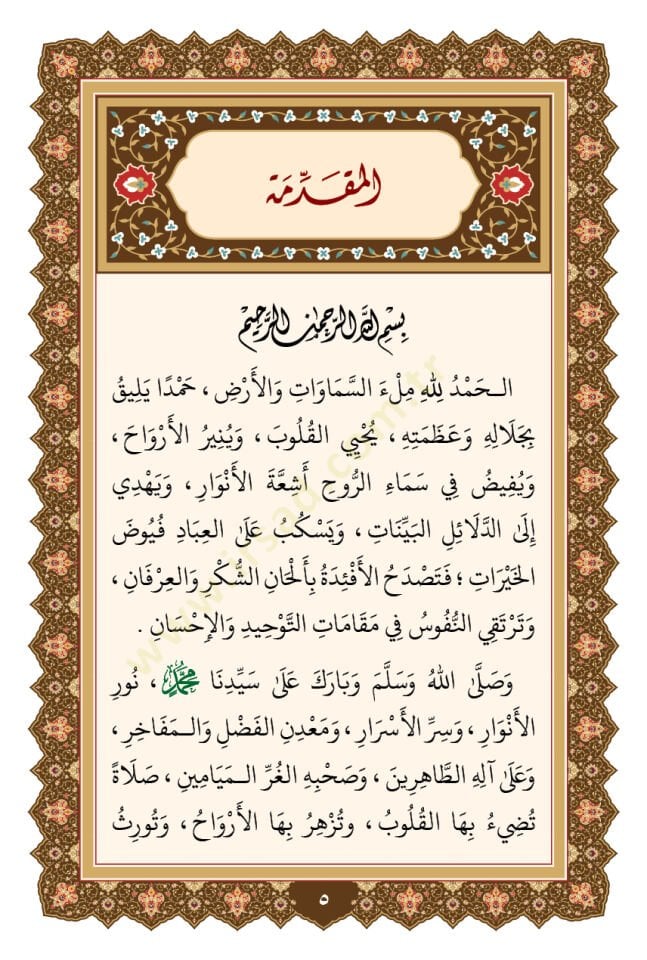 المقَدِّمَة
بِسْمِ اللهِ الرَّحْمٰنِ الرَّحِيمِ
الـحَمْدُ لِلّٰهِ مِلْءَ السَّمَاوَاتِ وَالأَرْضِ ، حَمْدًا يَلِيقُ
بِجَلَالِهِ وَعَظَمَتِهِ، يُحْيِي القُلُوبَ، وَيُنِيرُ الأَرْوَاحَ ،
وَيُفِيضُ فِي سَمَاءِ الرُّوحِ أَشِعَّةَ الأَنْوَارِ ، وَيَهْدِي
إِلَى الدَّلَائِلِ البَيِّنَاتِ ، وَيَسْكُبُ عَلَى العِبَادِ فُيُوضَ
الخَيْرَاتِ ؛ فَتَصْدَحُ الأَفْئِدَةُ بِأَلْحَانِ الشُّكْرِ وَالعِرْفَانِ ،
وَتَرْتَقِي النُّفُوسُ فِي مَقَامَاتِ التَّوْحِيدِ وَالإِحْسَانِ .
وَصَلَّى اللهُ وَسَلَّمَ وَبَارَكَ عَلَى سَيِّدِنَا مُحَمَّدٍ ، نُورِ
الأَنْوَارِ ، وَسِرِّ الأَسْرَارِ ، وَمَعْدِنِ الفَضْلِ وَالـمَفَاخِرِ ،
وَعَلَى آلِهِ الطَّاهِرِينَ ، وَصَحْبِهِ الغُرِّ الـمَيَامِينِ ، صَلَاةً
تُضِيءُ بِهَا القُلُوبُ ، وَتُزْهِرُ بِهَا الأَرْوَاحُ ، وَتُورِثُ
٥
www.irsad.com.tr